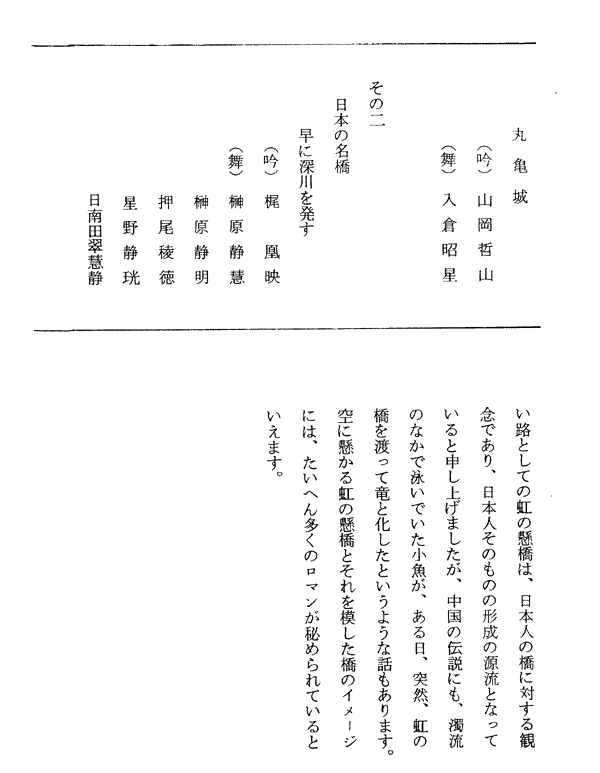 丸亀城
（吟）山岡哲山
（舞）入倉昭星
その二
日本の名橋
早に深川を発す
（吟）梶　凰映
（舞）榊原静慧
榊原静明
押尾稜徳
星野静珖
日南田翠慧静
い路としての虹の懸橋は、日本人の橋に対する観
念であり、日本人そのものの形成の源流となって
いると申し上げましたが、中国の伝説にも、濁流
のなかで泳いでいた小魚が、ある日、突然、虹の
橋を渡って竜と化したというような話もあります。
空に懸かる虹の懸橋とそれを模した橋のイメージ
には、たいへん多くのロマンが秘められていると
いえます。